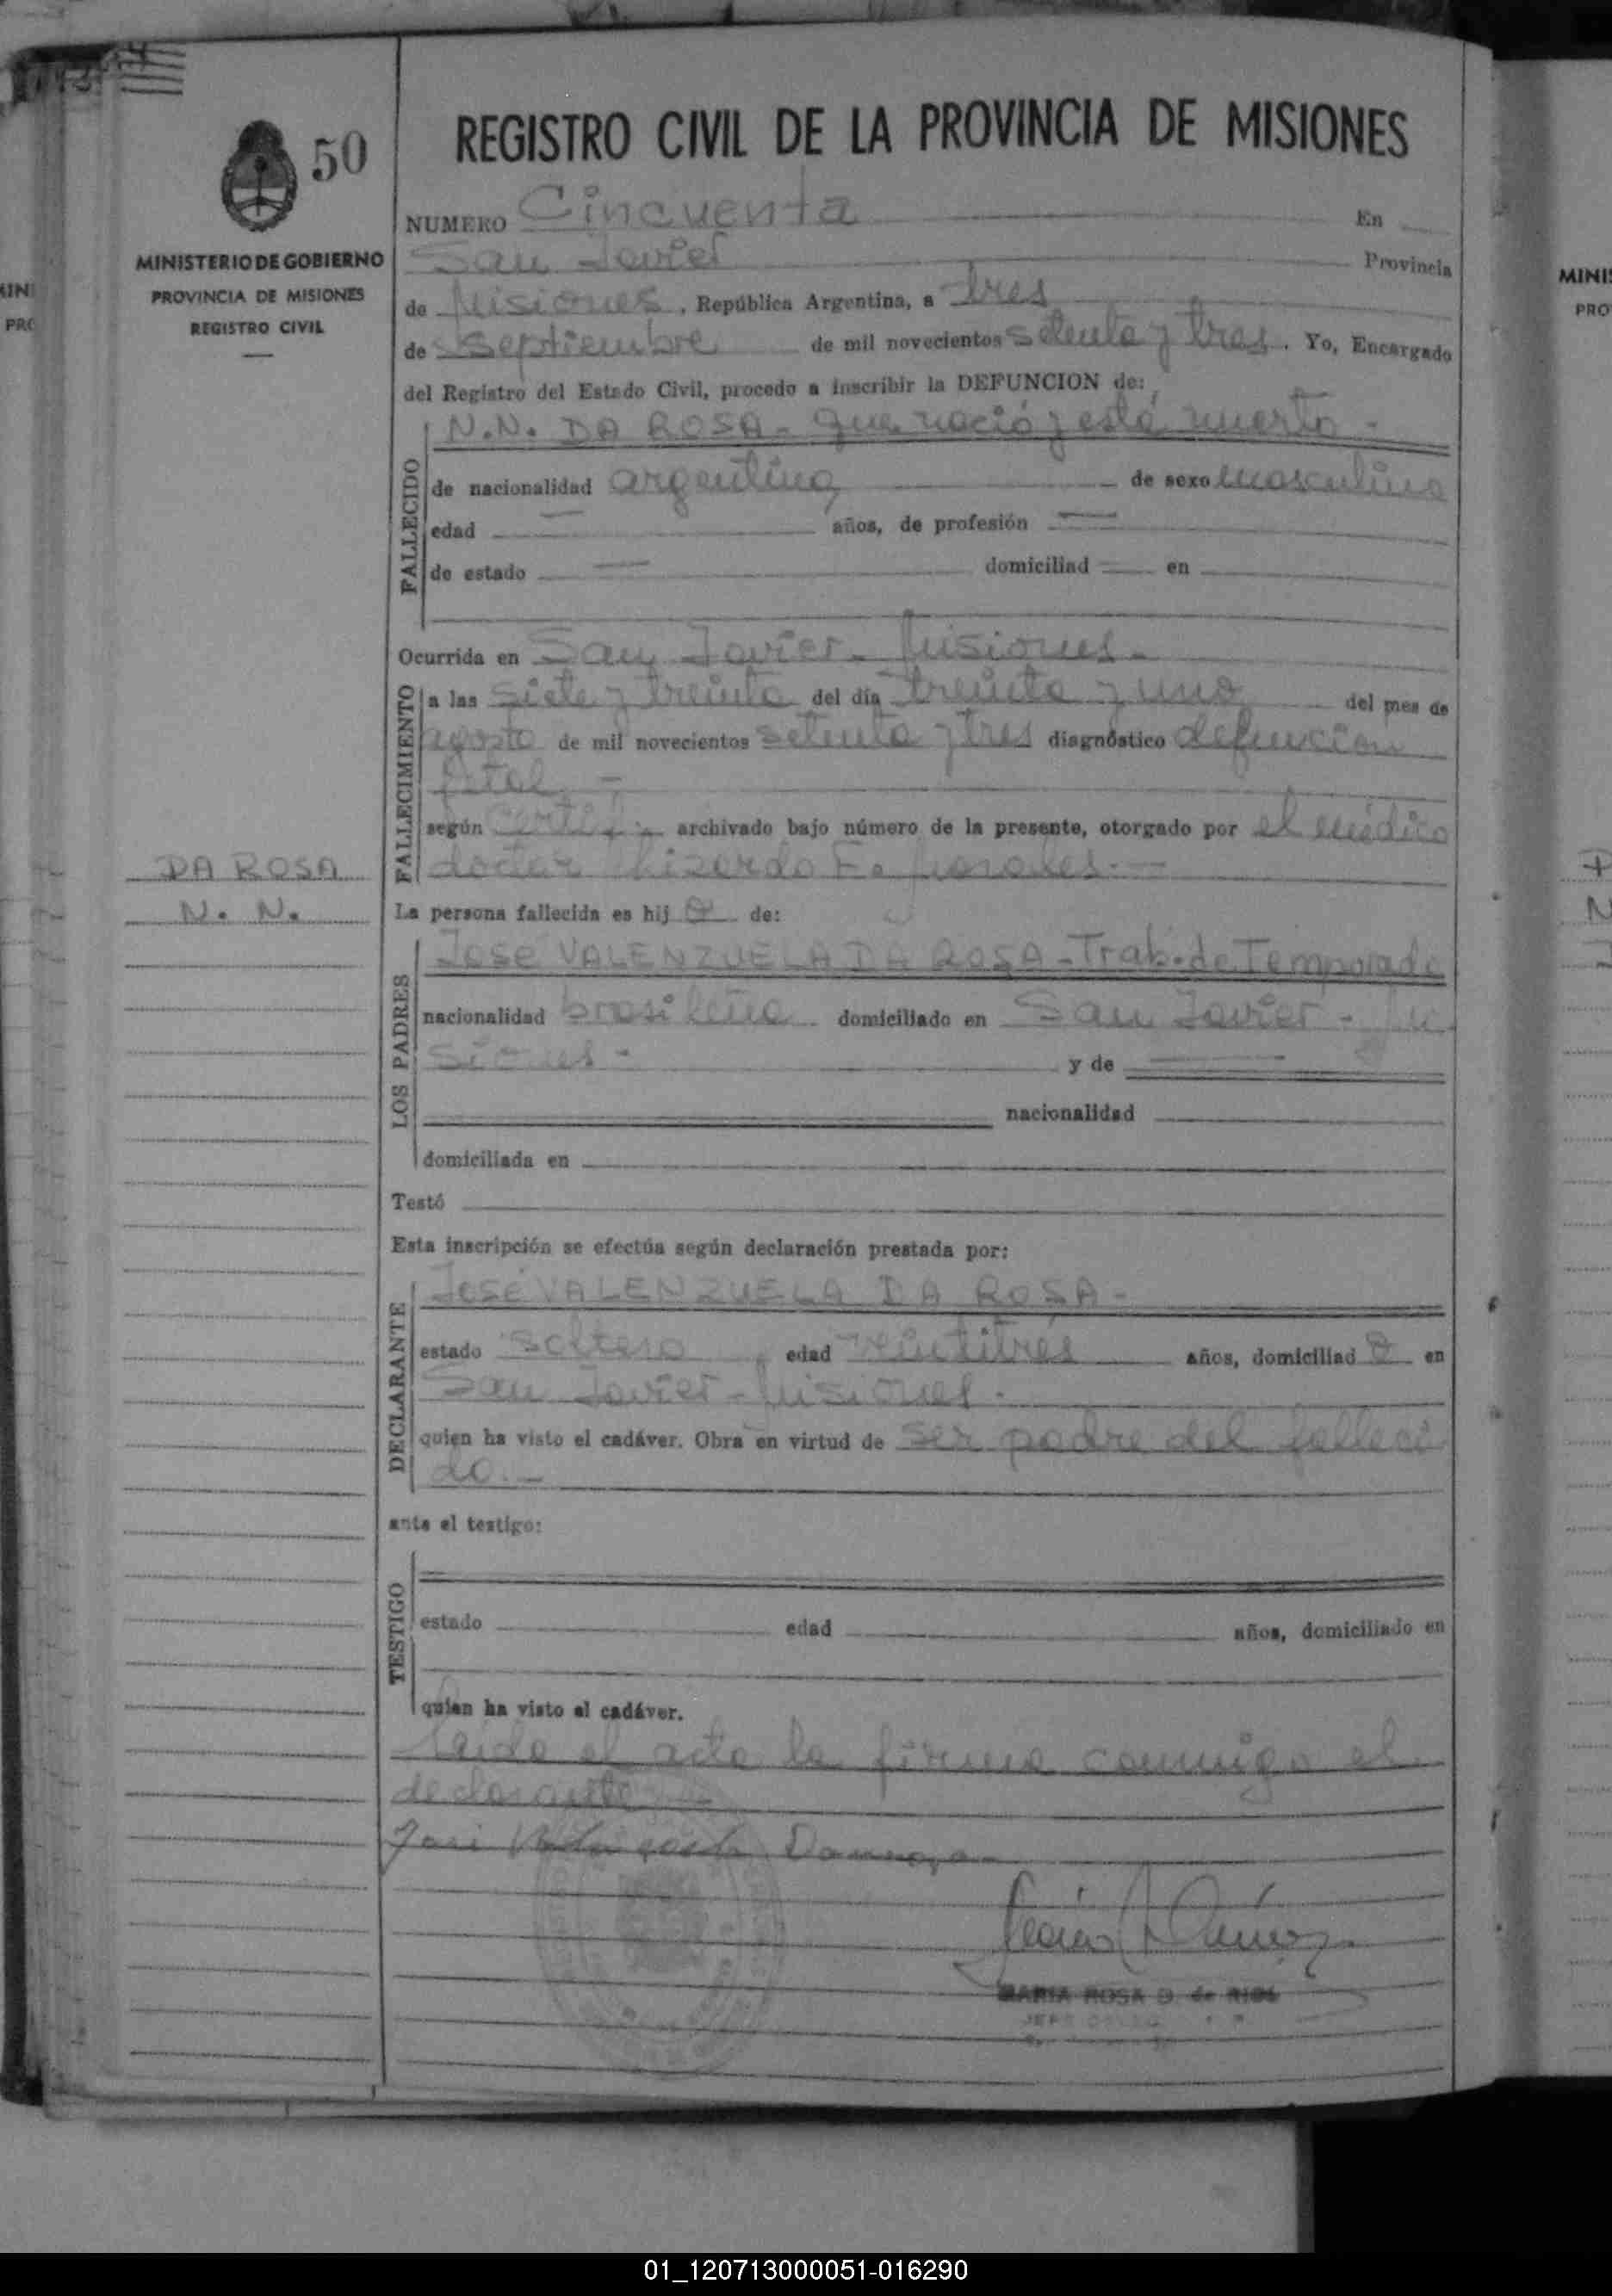 50
MINISTERIO DE GOBIERNO
PROVINCIA DE MISIONES
REGISTRO CIVIL
DA ROSA
N. N.
REGISTRO CIVIL DE LA PROVINCIA DE MISIONES
NUMERO Cincuenta En
San Javier Provincia
de Misiones, República Argentina, a tres
de septiembre de mil novecientos setenta y tres. Yo, Encargado
del Registro del Estado Civil, procedo a inscribir la DEFUNCION de:
FALLECIDO
N.N. DA ROSA - que nació y está muerto -
de nacionalidad argentina de sexo masculino
edad años, de profesión
de estado domiciliad en
Ocurrida en San Javier - Misiones -
FALLECIMIENTO
a las siete y treinta del día treinta y uno del mes de
agosto de mil novecientos setenta y tres diagnóstico defunción
fetal -
según certif. archivado bajo número de la presente, otorgado por el médico
doctor Lizardo F. Morales. -
La persona fallecida es hij o de:
LOS PADRES
JOSE VALENZUELA DA ROSA - Trab. de Temporada
nacionalidad brasileña domiciliado en San Javier - Mi
siones - y de
nacionalidad
domiciliada en
Testó
Esta inscripción se efectúa según declaración prestada por:
DECLARANTE
JOSÉ VALENZUELA DA ROSA -
estado soltero edad veintitrés años, domiciliad o en
San Javier - Misiones -
quien ha visto el cadáver. Obra en virtud de ser padre del falleci
do. -
ante el testigo:
TESTIGO
estado edad años, domiciliado en
quien ha visto el cadáver.
Leída el acta la firma conmigo el
declarante -
MARIA ROSA D. de RIOS
01_120713000051-016290